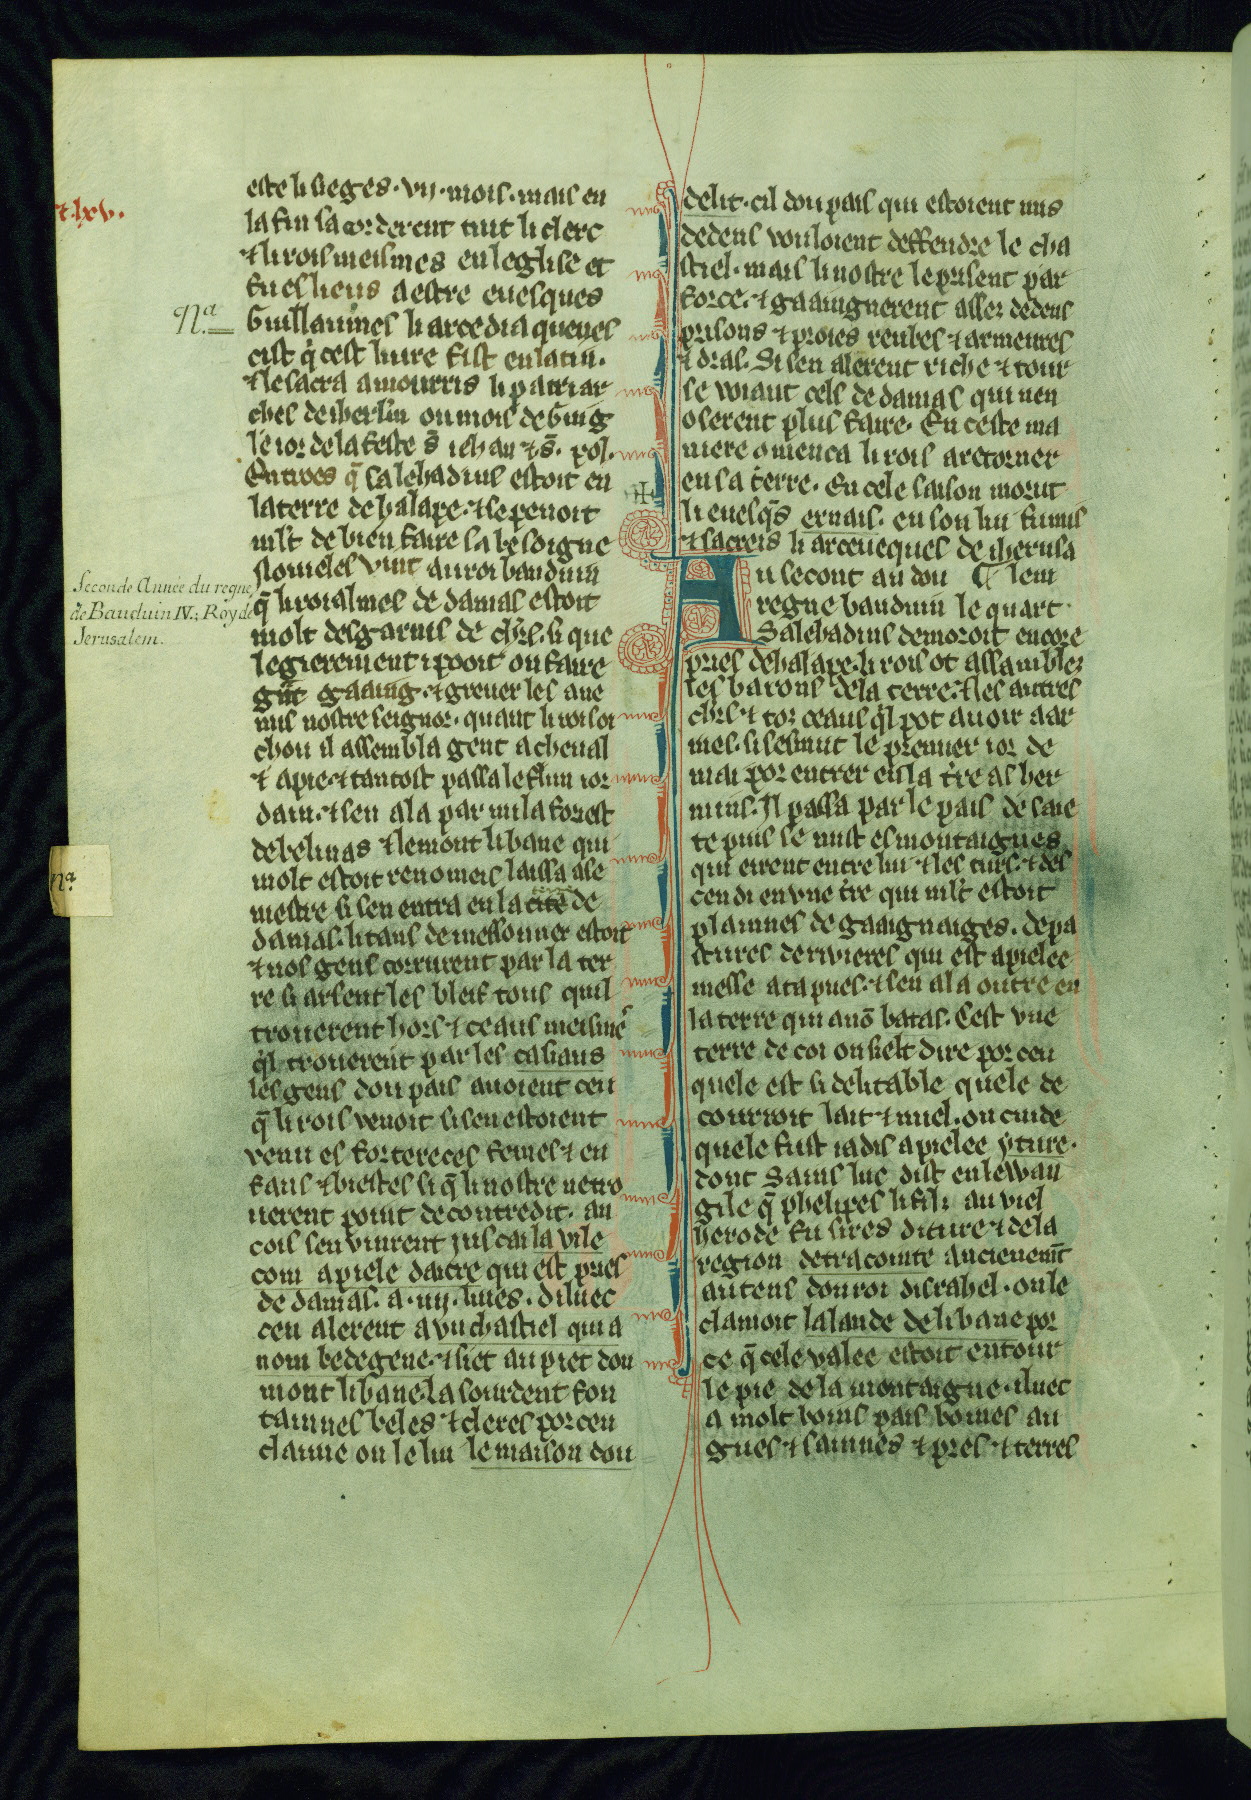 t. lxv.
este li sieges. vij. mois. mais en
la fin sacorderent tuit li clerc
⁊ li rois meismes en leglise et
fu eslieus a estre evesques
Guillaumes li arcediaquenes
cist q̇ cest livre fist en latin.
⁊ le sacra amourris li patriar
ches de iherlm̄ ou mois de Giug
le ior de la feste s̄ iehan ⁊ s̄. pol.
Entroes q̄ salehadins estoit en
la terre de halape. ⁊ se penoit
mlt̄ de bien faire sa besoigne
novieles vint au roi bauduin
q̄ li roialmes de damas estoit
molt desgarnis de chrs̄. si que
legierement i pooit on faire
gn̄t gaaing. ⁊ grever les ane
mis nostre seignor. quant li rois oi
chou il assembla gent a cheval
⁊ a pie. ⁊ tantost passa le flun ior
dain. ⁊ sen ala par mi la forest
de belinas ⁊ le mont libane qui
molt estoit renomeis laissa a se
niestre si sen entra en la cite de
damas. li tans de messonner estoit
⁊ nos gens corrurent par la ter
re si arsent les bleis tous quil
troverent hors ⁊ ceaus meismes
q̇l troverent par les casiaus
les gens dou pais avoient ceu
q̄ li rois venoit si sen estoient
venu es fortereces femes ⁊ en
fans ⁊ biestes si q̄ li nostre ne tro
verent point de contredit. an
cois sen vinrent iuscai la vile
com apiele daire qui est pries
de damas. a. iiij. liues. diluec
ceu alerent a vn chastiel qui a
nom bedegene. ⁊ siet au piet dou
mont libane. La sourdent fon
tainnes beles ⁊ cleres por ceu
claime on le liu le maison dou
Nᵃ
Seconde Année du regne
de Bauduin IV.; Roy de
Jerusalem.
nᵃ
delit. cil dou pais qui estoient mis
dedens vouloient deffendre le cha
stiel. mais li nostre le prisent par
force. ⁊ gaaignerent assez dedens
prisons ⁊ proies reubes ⁊ armeures
⁊ dras. Si sen alerent riche ⁊ tour
se voiant cels de damas qui nen
oserent plus faire. En ceste ma
niere comenca li rois a retorner
en sa terre. En cele saison morut
li evesq̄s ernais. en son liu fu mis
⁊ sacreis li arcevequel de iherusa
Au secont an dou ¶ lem
regne bauduin le quart
Salehadins demoroit encore
pries de halape. li rois ot assamblez
les barons de la terre. ⁊ les autres
chrs̄ ⁊ toz ceaus q̇l pot avoir a ar
mes. si sesmut le premier ior de
mai por entrer en la tr̄e as her
mins. Il passa par le pais de saie
te puis se mist es montaignes
qui eirent entre lui ⁊ les turs. ⁊ des
cendi en vne tr̄e qui mlt̄ estoit
plainnes de gaaignaiges. de pa
stures de rivieres qui est apielee
messe ata pues. ⁊ sen ala outre en
la terre qui a nō batas. Cest vne
terre de coi on sielt dire por ceu
quele est si delitable quele de
courroit lait ⁊ miel. on cuide
quele fust iadis apielee yture.
dont Sains luc dist en lewan
gile q̄ phelipes li filz au viel
herode fu sires diture ⁊ de la
region de tracomte ancienem̄t
au tens dou roi disrahel. on le
clamoit la lande de libane por
ce q̄ cele valee estoit entour
le pie de la montaigne. iluec
a molt boins pais boines au
gues ⁊ sainnes ⁊ pres ⁊ terres